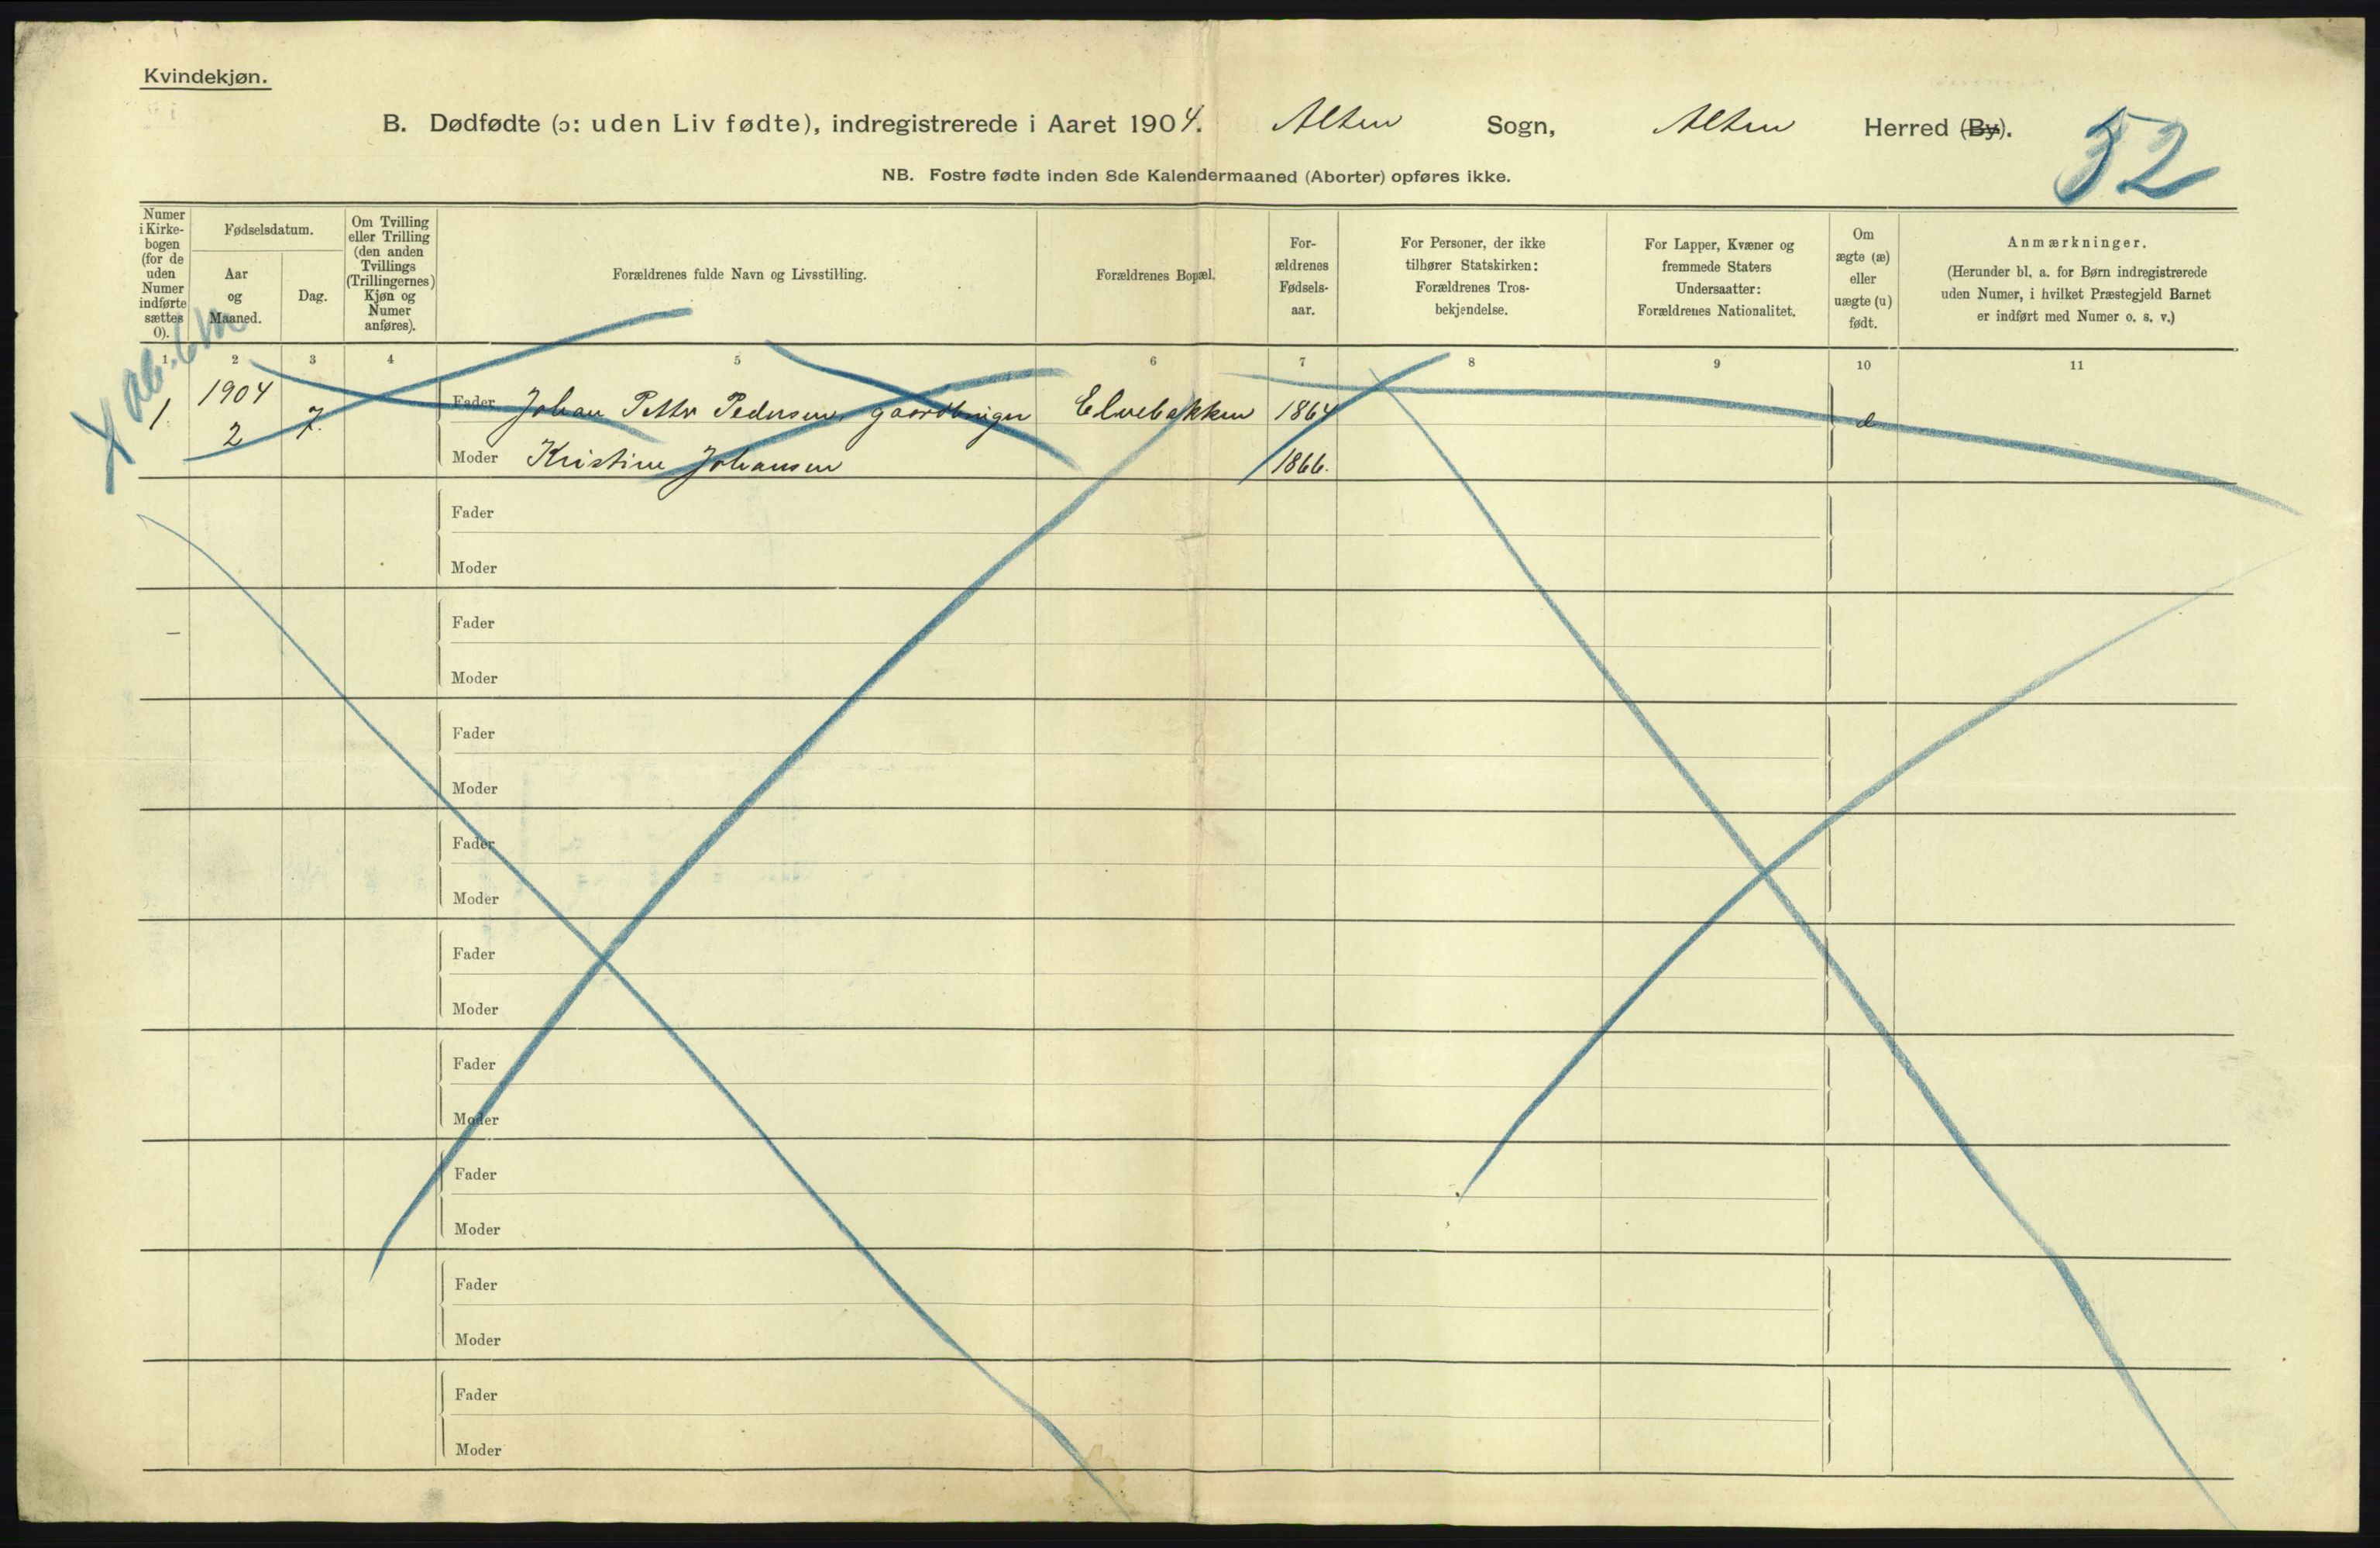 Kvindekjøn.
B. Dødfødte (ɔ: uden Liv fødte), indregistrerede i Aaret 1904. Alten Sogn, Alten Herred (By).
52
NB. Fostre fødte inden 8de Kalendermaaned (Aborter) opføres ikke.
Numer i Kirke-
bogen
(for de
uden
Numer
indførte
sættes
0).
Fødselsdatum.
Aar
og
Maaned.
Dag.
Om Tvilling
eller Trilling
(den anden
Tvillings
(Trillingernes)
Kjøn og
Numer
anføres).
Forældrenes fulde Navn og Livsstilling.
Forældrenes Bopæl.
For-
ældrenes
Fødsels-
aar.
For Personer, der ikke
tilhører Statskirken:
Forældrenes Tros-
bekjendelse.
For Lapper, Kvæner og
fremmede Staters
Undersaatter:
Forældrenes Nationalitet.
Om
ægte (æ)
eller
uægte (u)
født.
Anmærkninger.
(Herunder bl. a. for Børn indregistrerede
uden Numer, i hvilket Præstegjeld Barnet
er indført med Numer o. s. v.)
1 2 3 4 5 6 7 8 9 10 11
1. 1904 2 7. Fader Johan Petter Pedersen, gaardbruger Elvebakken 1864
Moder Kristine Johansen 1866.
Fader
Moder
Fader
Moder
Fader
Moder
Fader
Moder
Fader
Moder
Fader
Moder
Fader
Moder
Fader
Moder
Fader
Moder